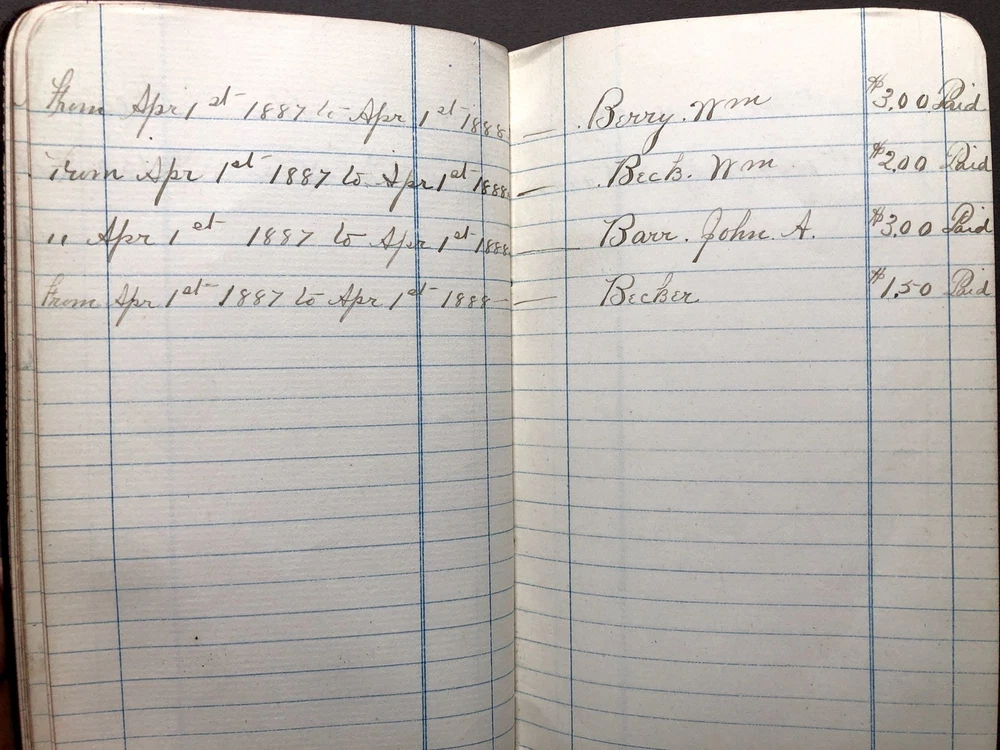 From Apr 1st 1887 to Apr 1st 1888 — Berry. Wm $3.00 Paid
From Apr 1st 1887 to Apr 1st 1888 — Beck. Wm $2.00 Paid
" Apr 1st 1887 to Apr 1st 1888 — Barr. John. A. $3.00 Paid
From Apr 1st 1887 to Apr 1st 1888 — Becker $1.50 Paid